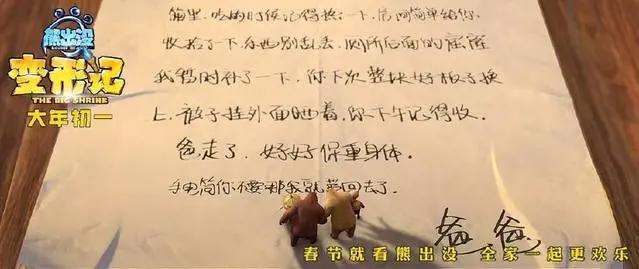 箱里,吃的时候记得热一下,房间简单给你
收拾了一下东西别乱丢,厕所后面的底座
我暂时补了一下,你下次整块好板子换
上,被子挂外面晒着,你下午记得收。
爸走了,好好保重身体。
手电筒你不要那我就带回去了。
爸爸
熊出没
变形记
THE BIG SHRINK
大年初一
春节就看熊出没 全家一起更欢乐